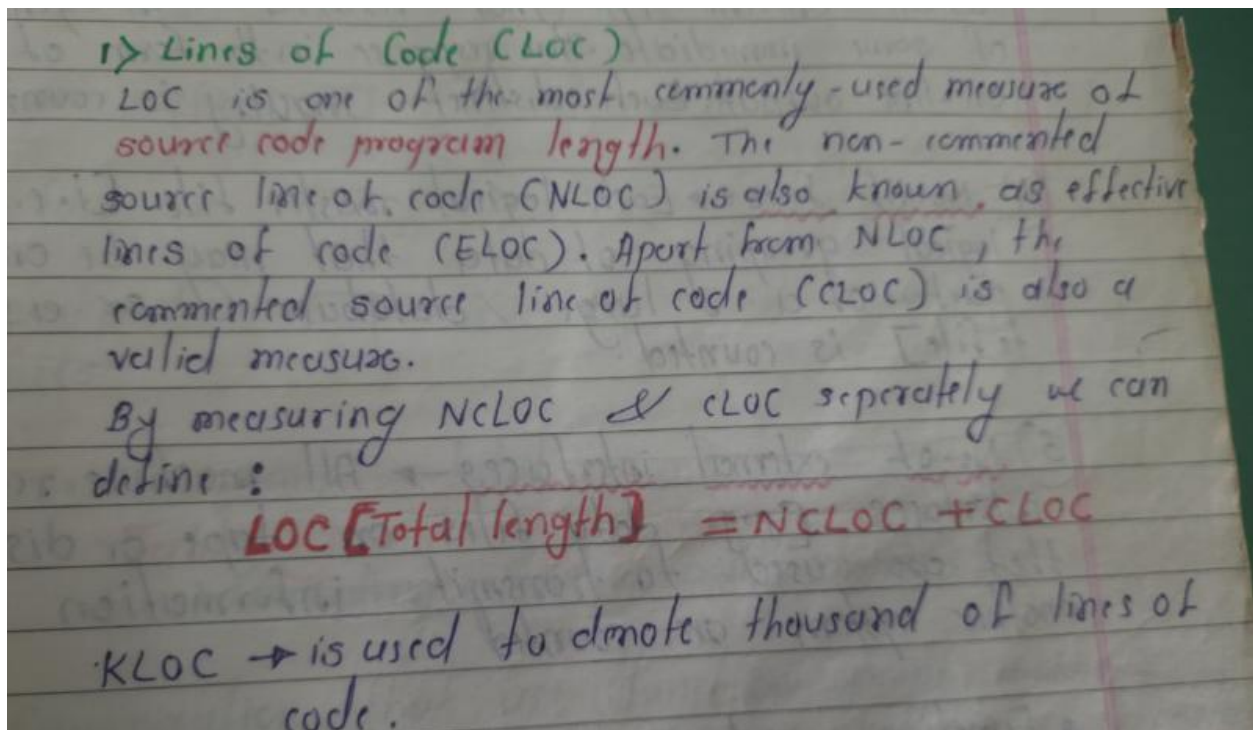 1> Lines of Code (LOC)
LOC is one of the most commonly-used measure of
source code program length. The non-commented
source line of code (NLOC) is also known as effective
lines of code (ELOC). Apart from NLOC, the
commented source line of code (CLOC) is also a
valid measure.
By measuring NCLOC & CLOC seperately we can
define :
LOC [Total length] = NCLOC + CLOC
KLOC → is used to denote thousand of lines of
code.